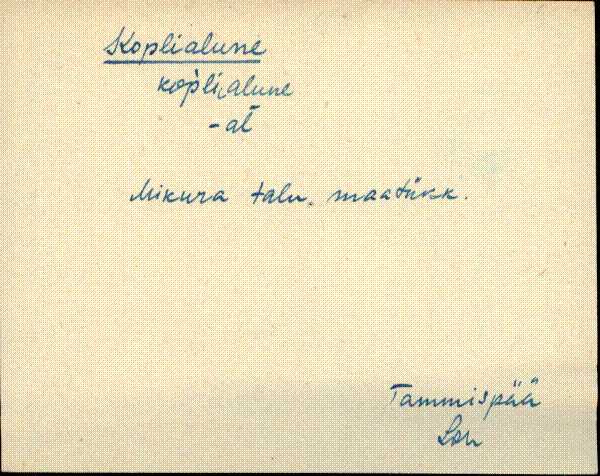 Koplialune
kop̀li‿alune
-at̄
Mikura talu. maatükk.
Tammispää
Loh